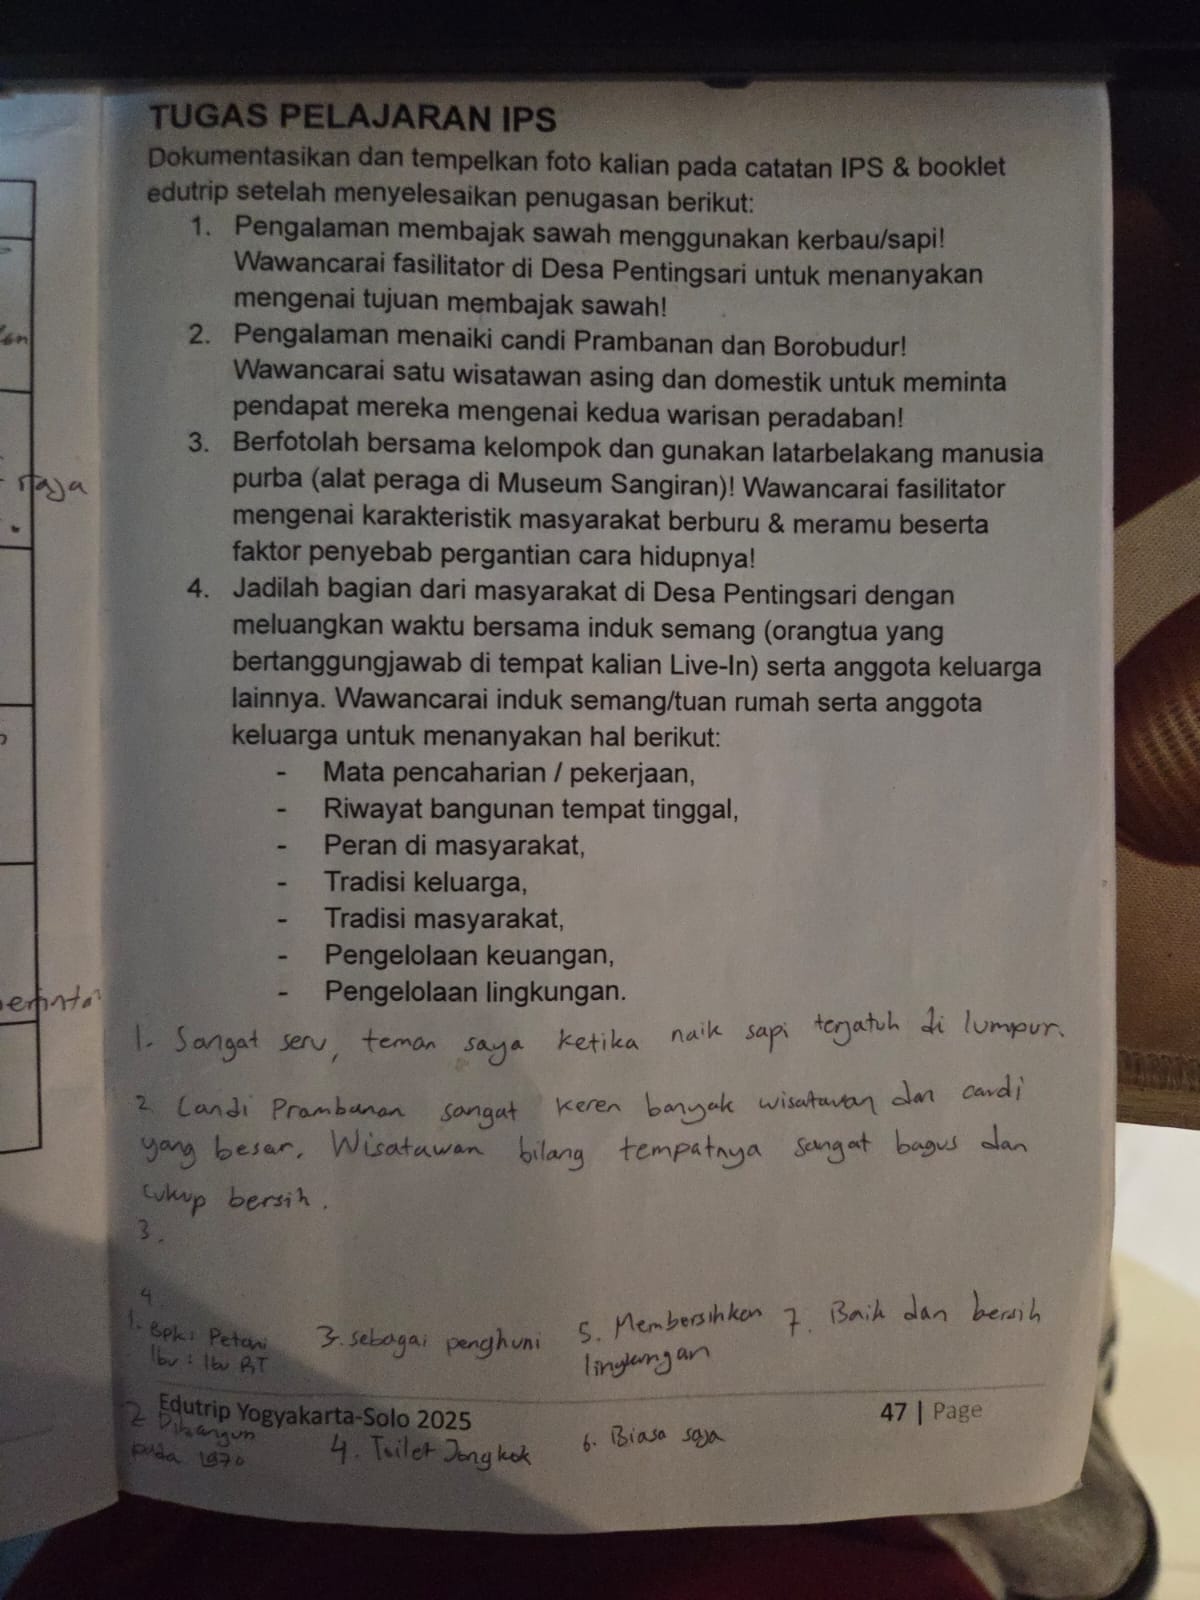 TUGAS PELAJARAN IPS
Dokumentasikan dan tempelkan foto kalian pada catatan IPS & booklet
edutrip setelah menyelesaikan penugasan berikut:
1. Pengalaman membajak sawah menggunakan kerbau/sapi!
Wawancarai fasilitator di Desa Pentingsari untuk menanyakan
mengenai tujuan membajak sawah!
2. Pengalaman menaiki candi Prambanan dan Borobudur!
Wawancarai satu wisatawan asing dan domestik untuk meminta
pendapat mereka mengenai kedua warisan peradaban!
3. Berfotolah bersama kelompok dan gunakan latarbelakang manusia
purba (alat peraga di Museum Sangiran)! Wawancarai fasilitator
mengenai karakteristik masyarakat berburu & meramu beserta
faktor penyebab pergantian cara hidupnya!
4. Jadilah bagian dari masyarakat di Desa Pentingsari dengan
meluangkan waktu bersama induk semang (orangtua yang
bertanggungjawab di tempat kalian Live-In) serta anggota keluarga
lainnya. Wawancarai induk semang/tuan rumah serta anggota
keluarga untuk menanyakan hal berikut:
- Mata pencaharian / pekerjaan,
- Riwayat bangunan tempat tinggal,
- Peran di masyarakat,
- Tradisi keluarga,
- Tradisi masyarakat,
- Pengelolaan keuangan,
- Pengelolaan lingkungan.
1. Sangat seru, teman saya ketika naik sapi terjatuh di lumpur.
2. Candi Prambanan sangat keren banyak wisatawan dan candi
yang besar. Wisatawan bilang tempatnya sangat bagus dan
cukup bersih.
3.
4.
1. Bpk: Petani
Ibu : Ibu RT
2 Dibangun
pada 1970
3. sebagai penghuni
4. Toilet Jongkok
5. Membersihkan
lingkungan
6. Biasa saja
7. Baik dan bersih
Edutrip Yogyakarta-Solo 2025
47 | Page